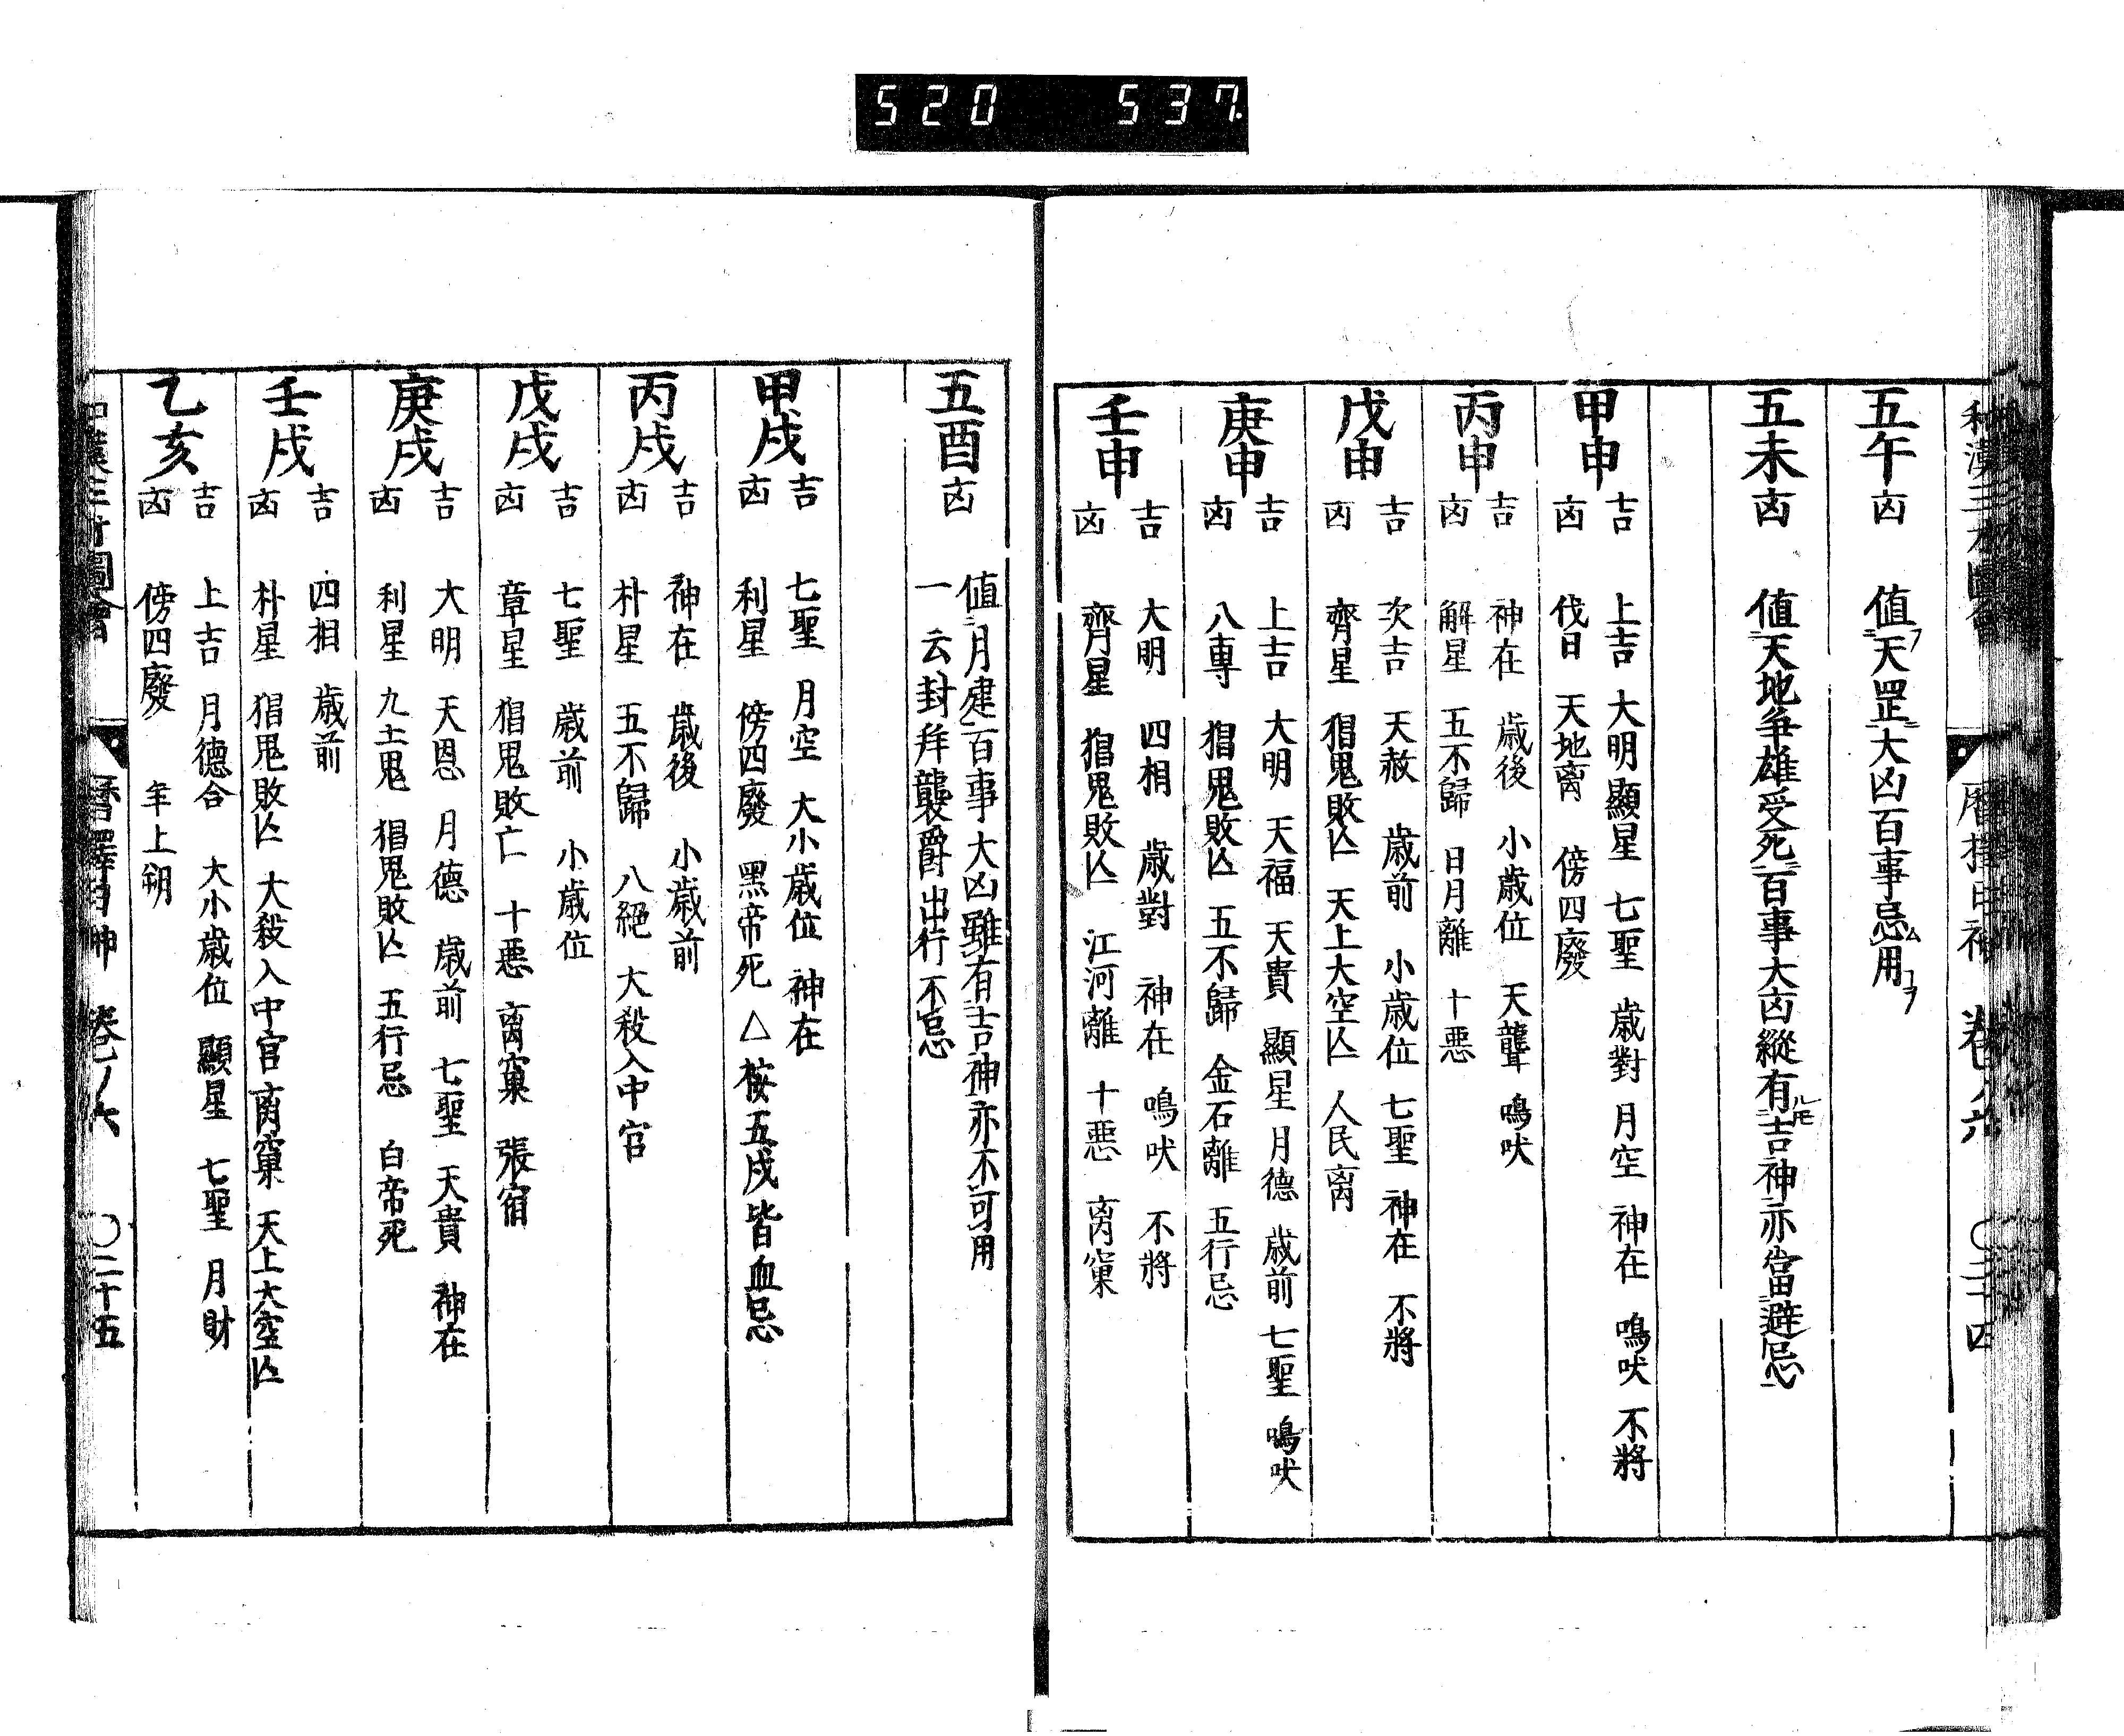 520 537
和漢三才圖會 曆擇日神 卷ノ六 〇二十四
五午 凶 値天罡大凶百事忌用ヿヲ
五未 凶 値天地争雄受死百事大凶縱有吉神亦當避忌
甲申
吉 上吉 大明 顯星 七聖 歳對 月空 神在 鳴吠 不將
凶 伐日 天地离 傍四廢
丙申
吉 神在 歳後 小歳位 天聾 鳴吠
凶 解星 五不歸 日月離 十悪
戊申
吉 次吉 天赦 歳前 小歳位 七聖 神在 不將
凶 齊星 猖鬼敗亾 天上大空亾 人民离
庚申
吉 上吉 大明 天福 天貴 顯星 月德 歳前 七聖 鳴吠
凶 八專 猖鬼敗亾 五不歸 金石離 五行忌
壬申
吉 大明 四相 歳對 神在 鳴吠 不將
凶 齊星 猖鬼敗亾 江河離 十悪 离窠
五酉 凶 値月建百事大凶雖有吉神亦不可用
一云封拜襲爵出行不忌
甲戌
吉 七聖 月空 大小歳位 神在
凶 利星 傍四廢 黑帝死 △按五戌皆血忌
丙戌
吉 神在 歳後 小歳前
凶 朴星 五不歸 八絕 大殺入中宮
戊戌
吉 七聖 歳前 小歳位
凶 章星 猖鬼敗亡 十悪 离窠 張宿
庚戌
吉 大明 天恩 月德 歳前 七聖 天貴 神在
凶 利星 九土鬼 猖鬼敗亾 五行忌 白帝死
壬戌
吉 四相 歳前
凶 朴星 猖鬼敗亾 大殺入中宮 离窠 天上大空亾
乙亥
吉 上吉 月德合 大小歳位 顯星 七聖 月財
凶 傍四廢 年上朔
和漢三才圖會 曆擇日神 卷ノ六 〇二十五